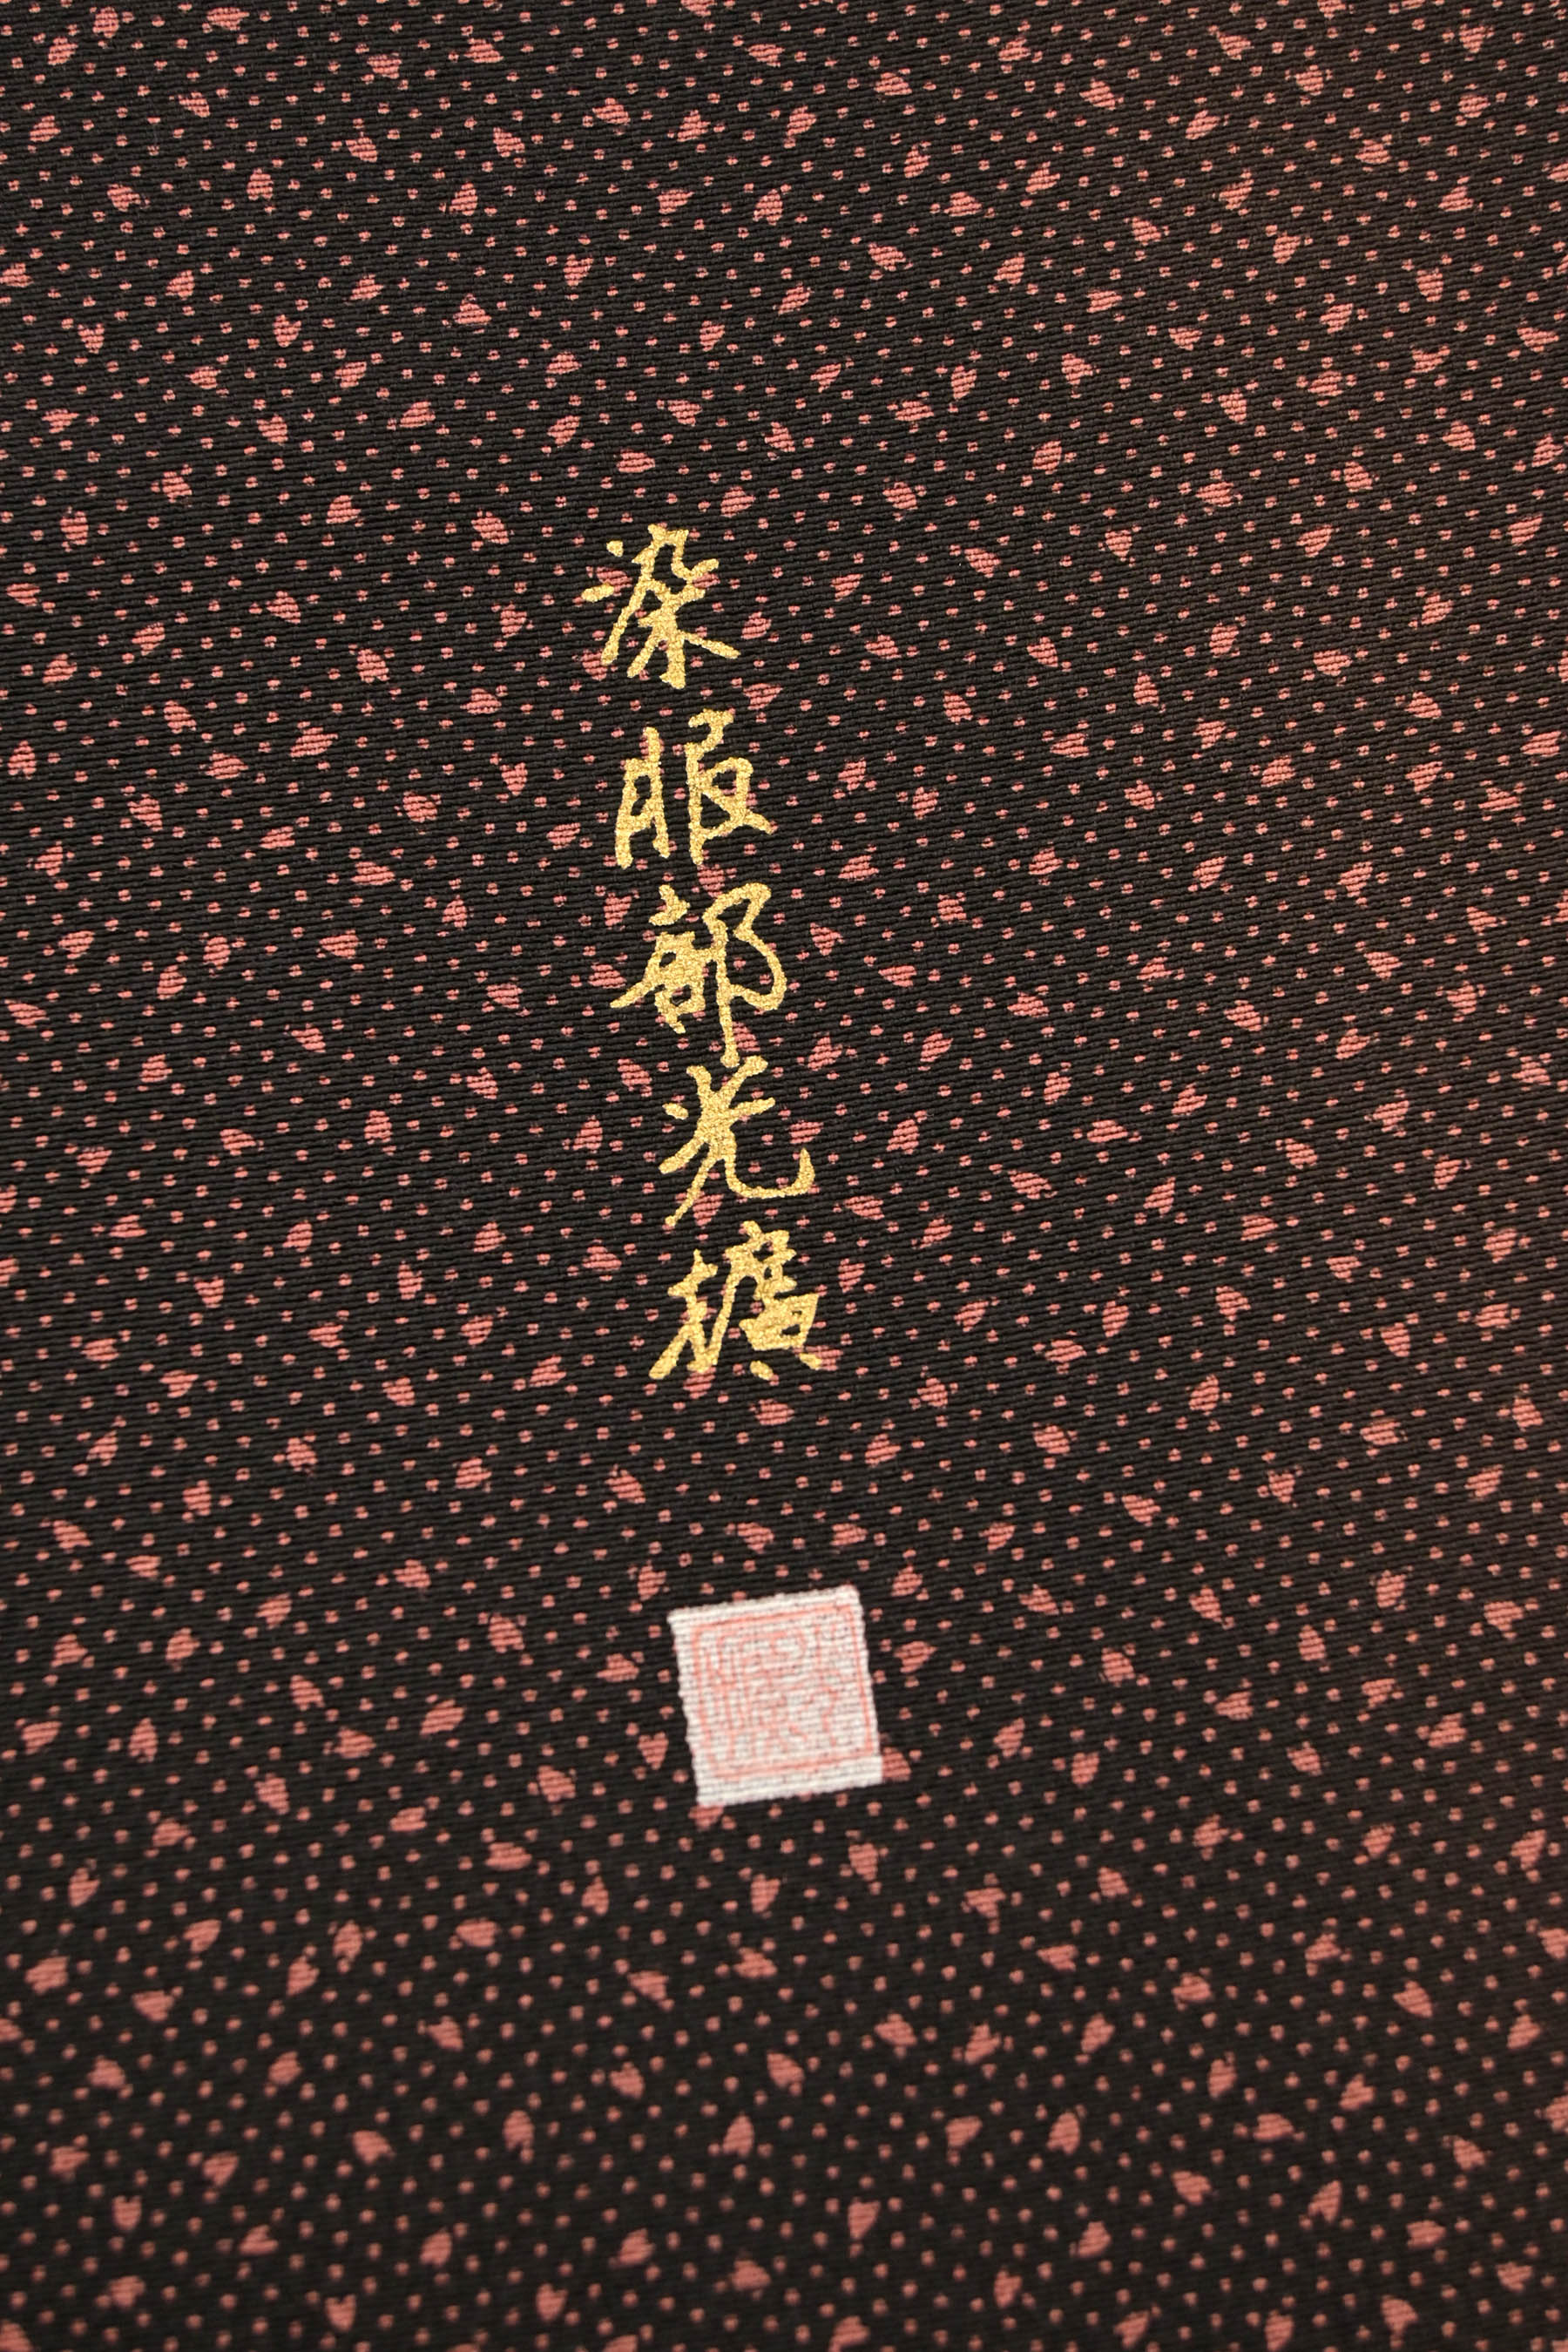 染服部光擴